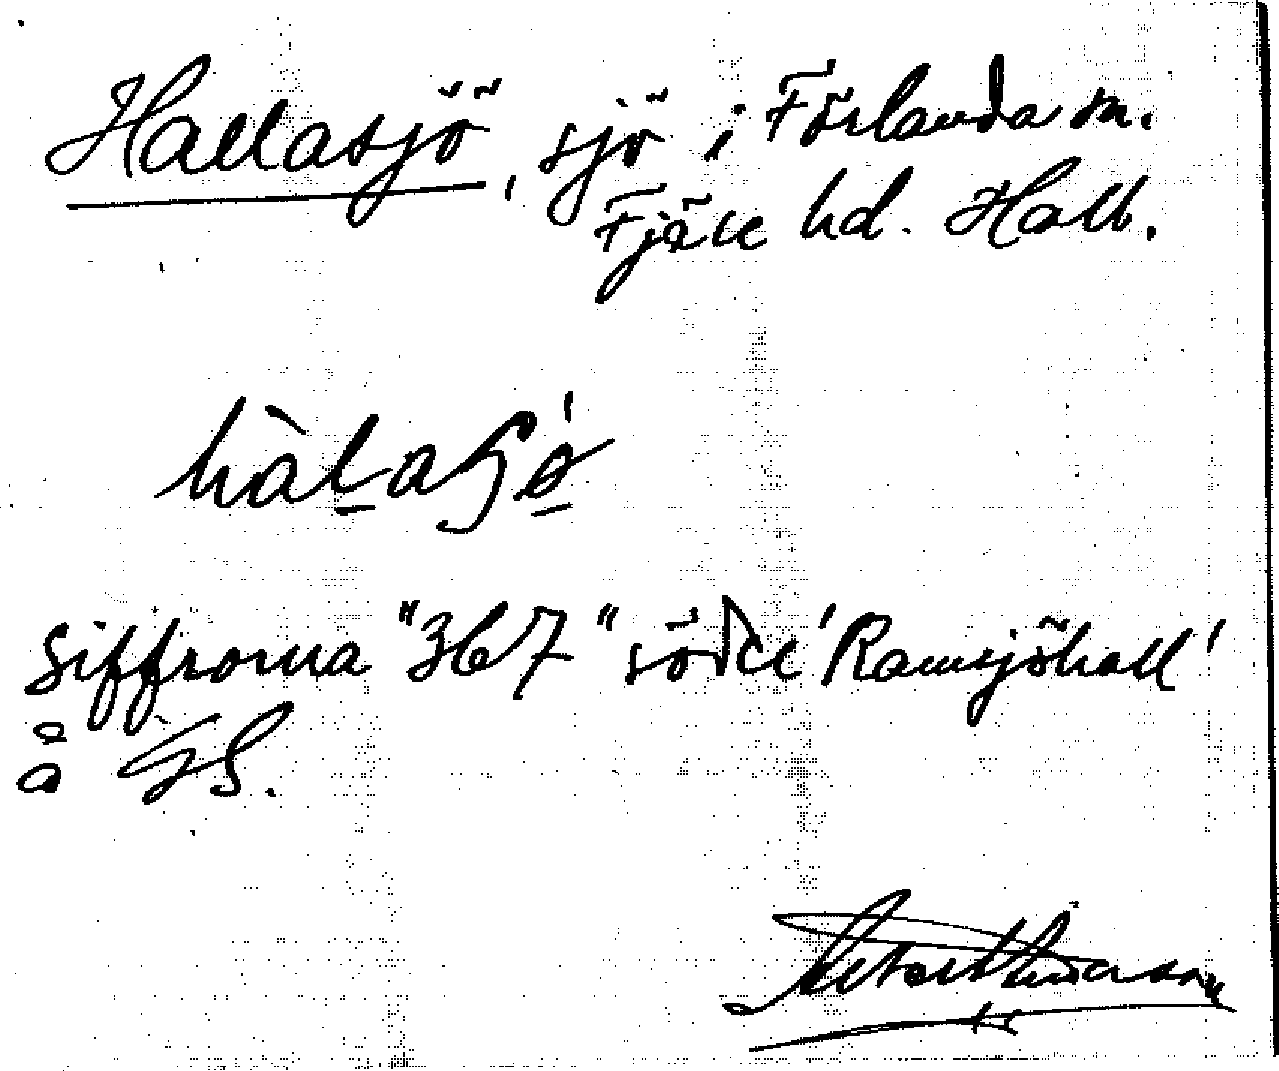 Hallasjö, sjö i Förlanda sn.
Fjäre hd. Hall.
hàlaSǿ
Siffrorna "367" söder 'Ramsjöhall'
å GS.